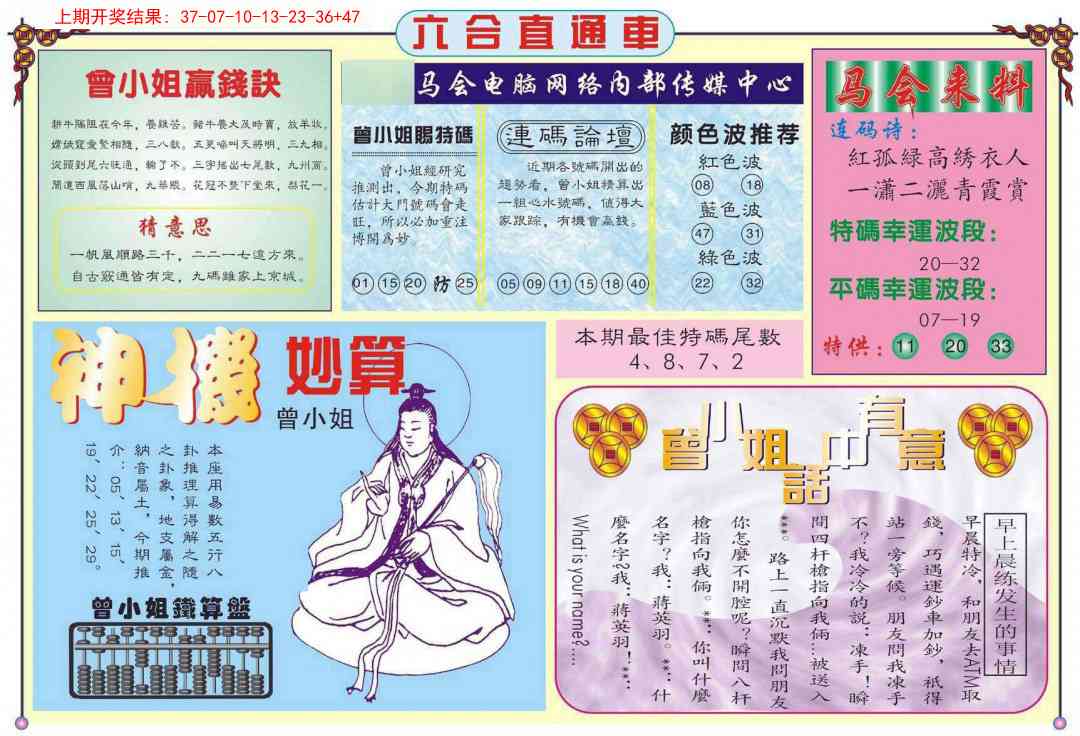 上期开奖结果：37-07-10-13-23-36+47
六合直通車
曾小姐贏錢訣
耕牛隔阻在今年，養雞苦。豬牛養大及時賣，放羊妝。
三八獻。五更啼叫天將明，三九相。
從頭到尾六旺通，輸了不。三字搖出七尾數，九州商。
聞道西風落山哨，九華殿。花冠不整下堂來，梨花一。
猜意思
一帆風順路三千，二二一七這方來。
自古竅通皆有定，九碼雖家上京城。
马会电脑网络内部传媒中心
曾小姐賜特碼
曾小姐經研究
推測出，今期特码
估計大門號碼會走
旺，所以必加重注
博開爲妙
01 15 20 防 25
連碼論壇
近期各號碼開出的
趨勢看，曾小姐精算出
一組心水號碼，值得大
家跟踪，有機會贏錢。
05 09 11 15 18 40
颜色波推荐
紅色波
08 18
藍色波
47 31
綠色波
22 32
马会来料
连码诗：
紅孤緑高绣衣人
一瀟二灑青霞賞
特碼幸運波段：
20—32
平碼幸運波段：
07—19
特供：11 20 33
本期最佳特碼尾數
4、8、7、2
神機妙算
曾小姐
本座用易數五行八
卦推理算得解之隨
之卦象，地支屬金，
納音屬土，今期推
介：05、13、15、
19、22、25、29。
曾小姐鐵算盤
曾小姐話中有意
早上晨练发生的事情
早晨特冷，和朋友去ATM取
錢，巧遇運鈔車加鈔，祇得
站一旁等候。朋友問我凍手
不？我冷冷的説：凍手！瞬
間四杆槍指向我倆…被送入
***。路上一直沉默我問朋友
你怎麼不開腔呢？瞬間八杆
槍指向我倆。***：你叫什麼
名字？我：蔣英羽。***：什
麼名字?我：蔣英羽！***：
What is your name?....